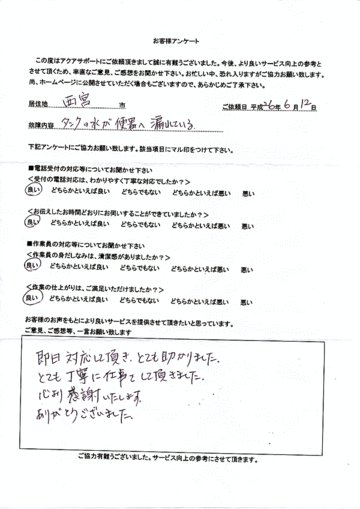 お客様アンケート
この度はアクアサポートにご依頼頂きまして誠に有難うございました。今後、より良いサービス向上の参考と
させて頂くため、率直なご意見、ご感想をお聞かせ下さい。お忙しい中、恐れ入りますがご協力お願い致します。
尚、ホームページに公開させていただく場合もございますので、あらかじめご了承下さい。
居住地 西宮 市 ご依頼日 平成26年6月12日
故障内容 タンクの水が便器へ漏れている
下記アンケートにご協力お願い致します。該当項目にマル印をつけて下さい。
■電話受付の対応等についてお聞かせ下さい
<受付の電話対応は、わかりやすく丁寧な対応でしたか？>
良い どちらかといえば良い どちらでもない どちらかといえば悪い 悪い
<お伝えしたお時間どおりにお伺いすることができていましたか？>
良い どちらかといえば良い どちらでもない どちらかといえば悪い 悪い
■作業員の対応等についてお聞かせ下さい
<作業員の身だしなみは、清潔感がありましたか？>
良い どちらかといえば良い どちらでもない どちらかといえば悪い 悪い
<作業の仕上がりは、ご満足いただけましたか？>
良い どちらかといえば良い どちらでもない どちらかといえば悪い 悪い
お客様のお声をもとにより良いサービスを提供させて頂きたいと思っています。
ご意見、ご感想等、一言お願い致します
即日対応して頂き、とても助かりました。
とても丁寧に仕事をして頂きました。
心より感謝いたします。
ありがとうございました。
ご協力有難うございました。サービス向上の参考にさせて頂きます。